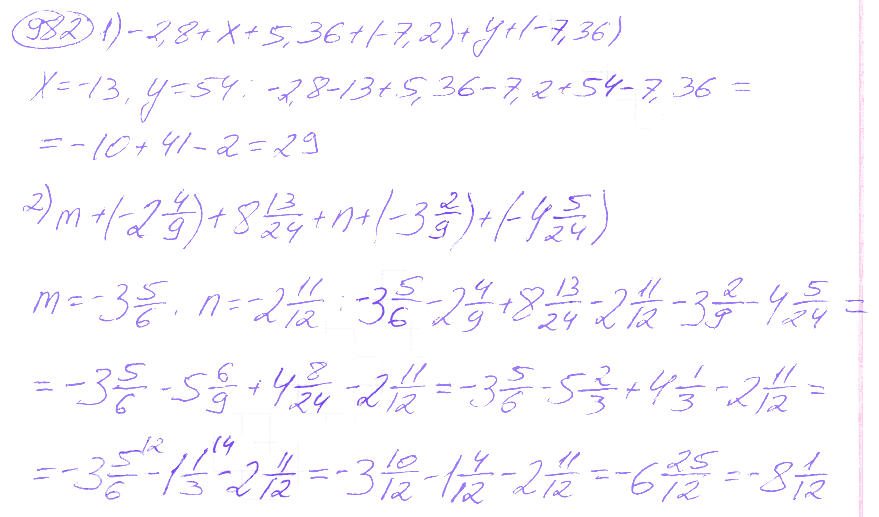 982 1) -2,8+x+5,36+(-7,2)+y+(-7,36)
x=-13, y=54: -2,8-13+5,36-7,2+54-7,36=
=-10+41-2=29
2) m+(-2 4/9)+8 13/24+n+(-3 2/9)+(-4 5/24)
m=-3 5/6, n=-2 11/12: -3 5/6-2 4/9+8 13/24-2 11/12-3 2/9-4 5/24=
=-3 5/6-5 6/9+4 8/24-2 11/12=-3 5/6-5 2/3+4 1/3-2 11/12=
=-3 5/6 \12 -1 1/3 \14 -2 11/12=-3 10/12-1 4/12-2 11/12=-6 25/12=-8 1/12